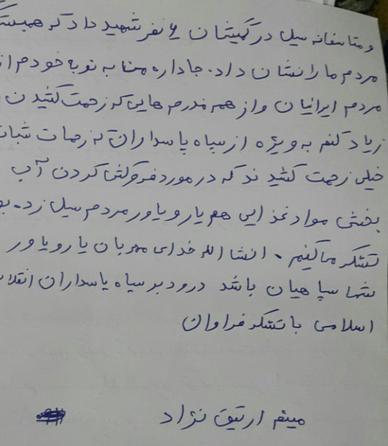 ومتاسفانه سیل در گمیشان ۶ نفر شهید داد که همبستگ
مردم ما را نشان داد. جا داره منا به نوبه خودم از
مردم ایرانیان و از همه مردم هایی که زحمت کشیدن
زیاد کنم به ویژه از سپاه پاسداران که زحمات شبان
خیلی زحمت کشیدند که در مورد فروکش کردن آب
بخش مواد غذایی هم یار و یاور مردم سیل زد. بو
تشکر ماکنیم. انشا الله خدای مهربان یار و یاور
شما سپاهیان باشد درود بر سپاه پاسداران انقلا
اسلامی با تشکر فراوان
میثم ارتیق نژاد